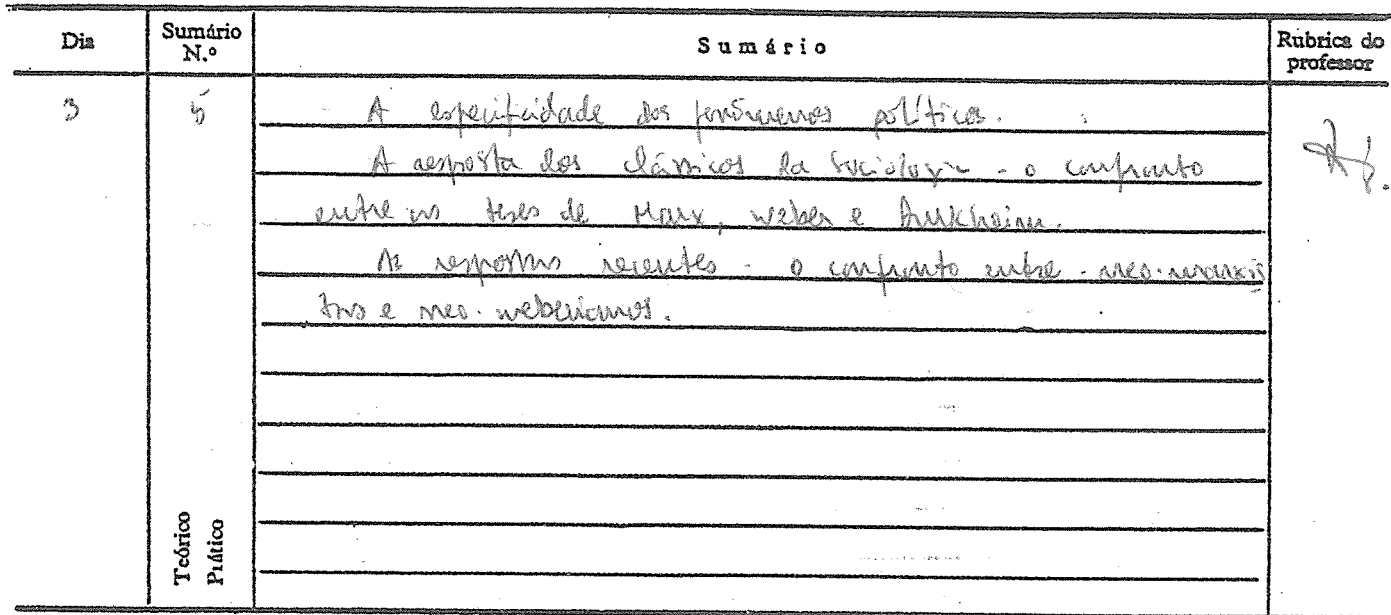 Dia Sumário N.º Sumário Rubrica do professor
3 5 A especificidade dos fenómenos políticos.
A resposta dos clássicos da Sociologia - o confronto
entre as teses de Marx, Weber e Durkheim.
As respostas recentes - o confronto entre neo-marxis
tas e neo-weberianos.
Teórico
Prático